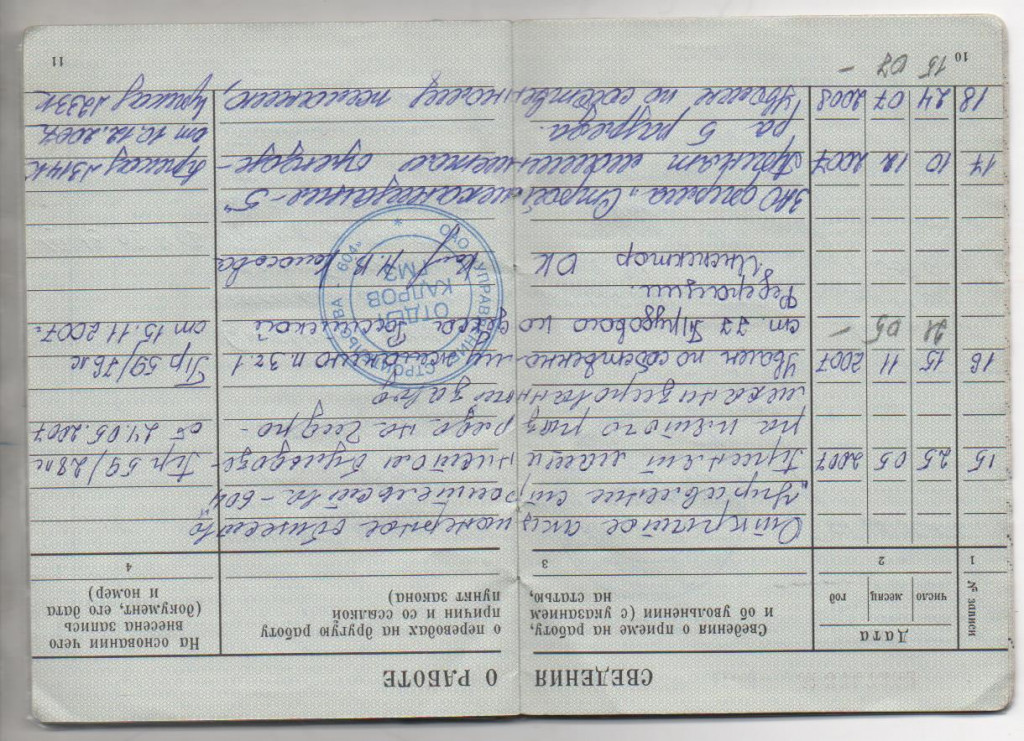 СВЕДЕНИЯ О РАБОТЕ
№ записи
Дата
число
месяц
год
Сведения о приеме на работу, о переводах на другую работу
и об увольнении (с указанием причин и со ссылкой
на статью, пункт закона)
На основании чего
внесена запись
(документ, его дата
и номер)
1 2 3 4
Открытое акционерное общество
"Управление строительства - 604"
15 25 05 2007 Принят машинистом бульдозе- Пр 59/28к
ра пятого разряда на Гидро- от 24.05.2007
механизированные
16 15 11 2007 Уволен по собственному желанию п. 3 ч 1 Пр 59/76к
21 05 -
ст. 77 Трудового кодекса Российской от 15.11.2007г
Федерации.
Инспектор ОК Н.В.
ЗАО фирма "Строймеханизация - 5"
17 10 12 2007 Принят машинистом бульдозе- Приказ №314к
ра 5 разряда. от 10.12.2007
18 24 07 2008 Уволен по собственному желанию, Приказ №233к
15 07 -
10
11
ОАО "УПРАВЛЕНИЕ СТРОИТЕЛЬСТВА - 604"
ОТДЕЛ
КАДРОВ
ГМЗ